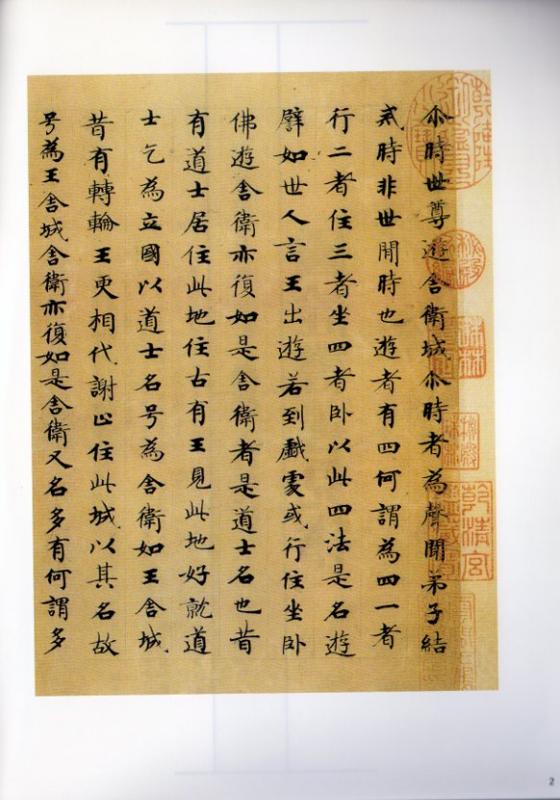 尒時世尊遊舍衛城尒時者為聲聞弟子結
戒時非世間時也遊者有四何謂為四一者
行二者住三者坐四者卧以此四法是名遊
譬如世人言王出遊若到戲處或行住坐卧
佛遊舍衛亦復如是舍衛者是道士名也昔
有道士居住此地住古有王見此地好就道
士乞為立國以道士名号為舍衛如王舍城
昔有轉輪王更相代謝止住此城以其名故
号為王舍城舍衛亦復如是舍衛又名多有何謂多
乾清宮
2